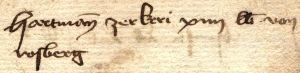 Hartman zer keri xiiii lb von
rosberg